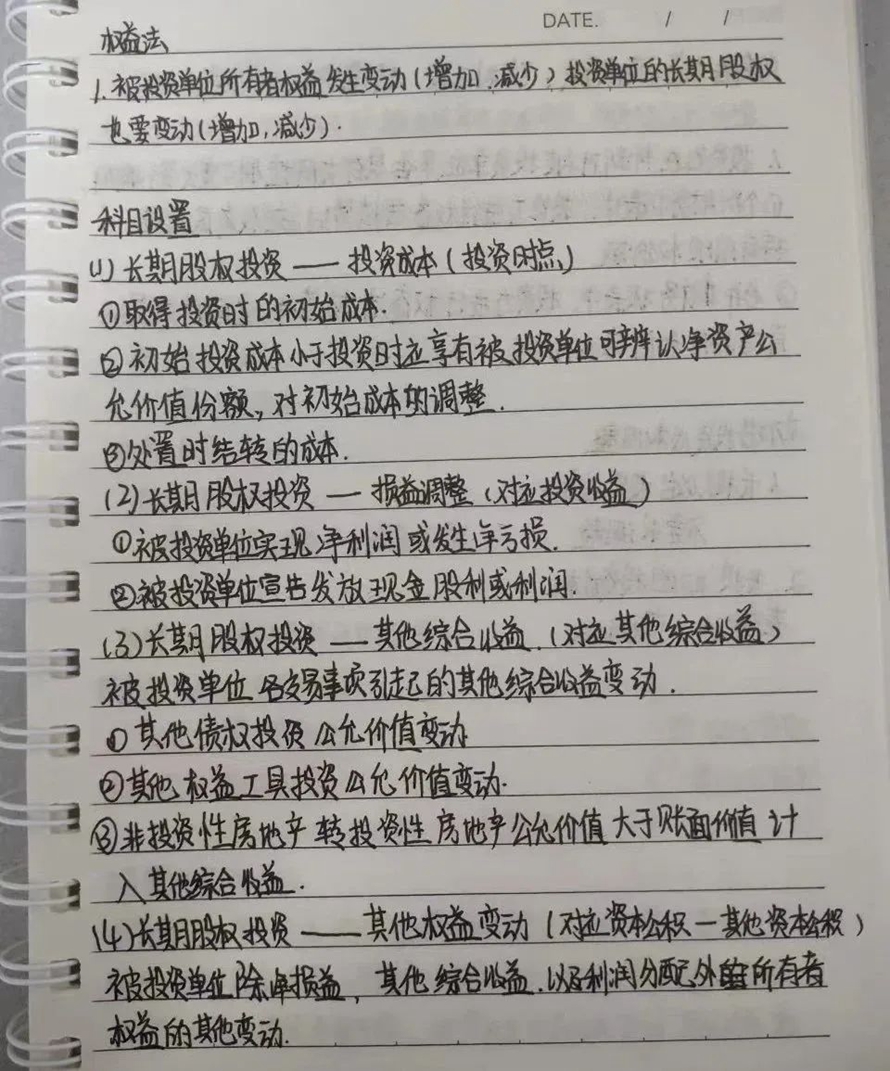 DATE. / /
权益法
1. 被投资单位所有者权益发生变动(增加、减少)投资单位的长期股权
也要变动(增加,减少).
科目设置
(1)长期股权投资——投资成本(投资时点)
①取得投资时的初始成本.
②初始投资成本小于投资时应享有被投资单位可辨认净资产公
允价值份额,对初始成本的调整.
③处置时结转的成本.
(2)长期股权投资——损益调整(对应投资收益)
①被投资单位实现净利润或发生净亏损.
②被投资单位宣告发放现金股利或利润.
(3)长期股权投资——其他综合收益.(对应其他综合收益)
被投资单位各交易事项引起的其他综合收益变动.
①其他债权投资公允价值变动
②其他权益工具投资公允价值变动.
③非投资性房地产转投资性房地产公允价值大于账面价值计
入其他综合收益.
(4)长期股权投资——其他权益变动(对应资本公积—其他资本公积)
被投资单位除净损益,其他综合收益.以及利润分配外的所有者
权益的其他变动.